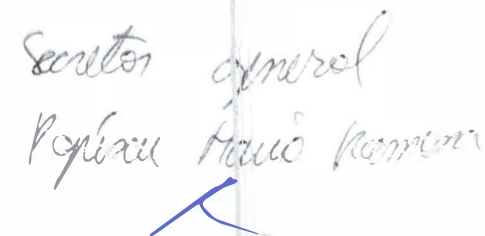 Secretar general
Popescu Maria Ramona